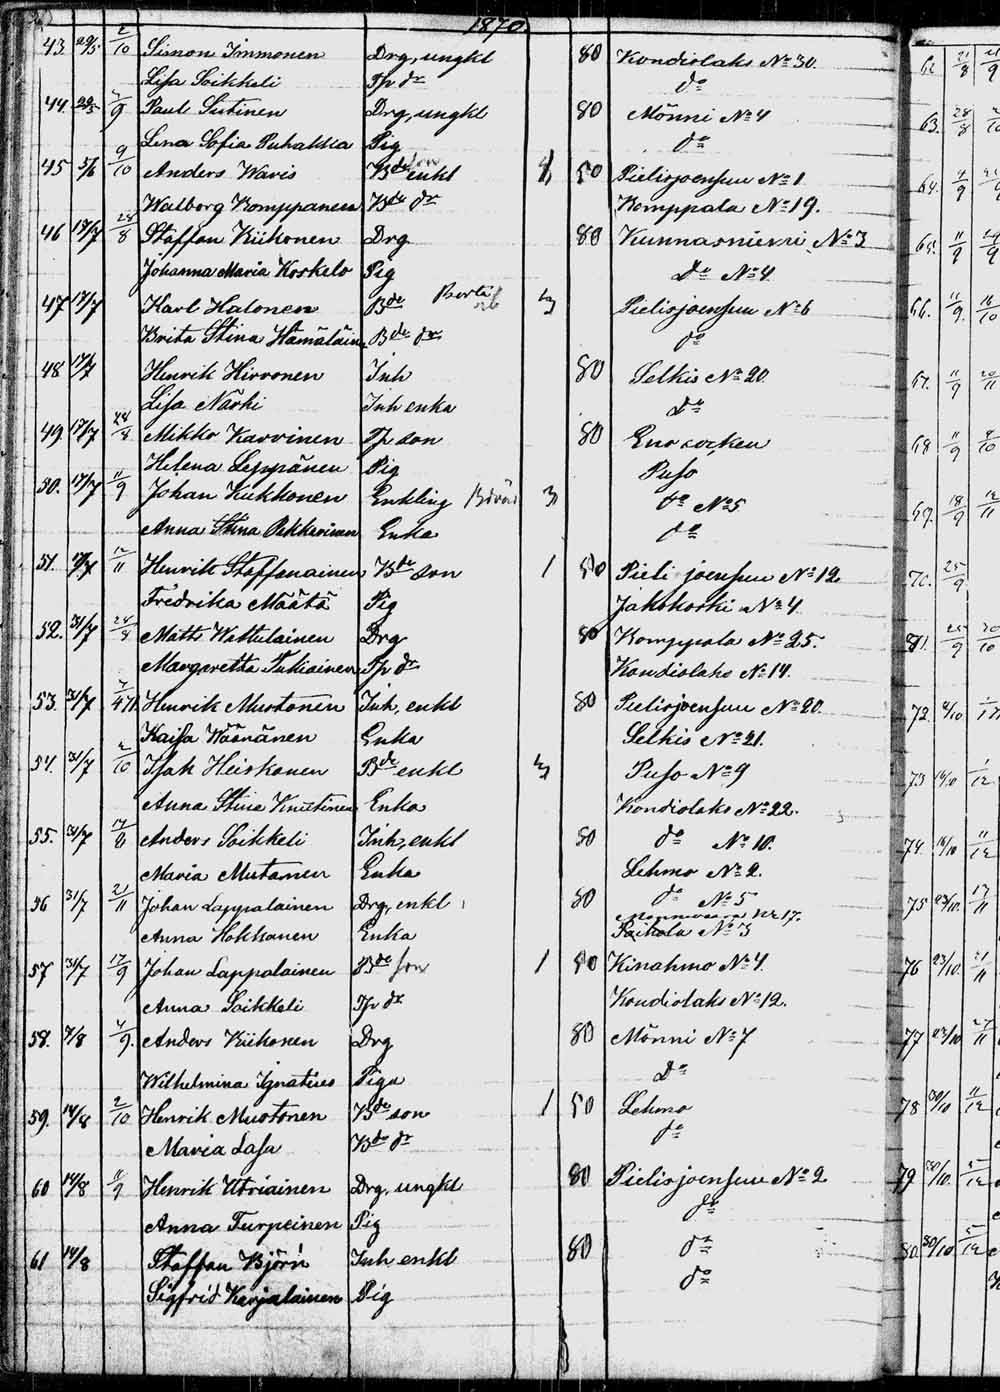 1870
43 29/5 2/10 Simon Immonen Drg, ungkl 80 Kondiolaks № 30.
Lisa Soikkeli Tp dr do
44. 29/5 4/9 Paul Sutinen Drg, ungkl 80 Mönni № 4
Lena Sofia Puhakka Pig do
45 5/6 9/10 Anders Waris Bde enkl 50 Pielisjoensuu № 1
Walborg Komppanen Bde dr Komppala № 19.
46 17/7 28/8 Staffan Kiikonen Drg 80 Kunnasniemi № 3
Johanna Maria Koskelo Pig Do № 4.
47 17/7 Karl Halonen Bde 3 Pielisjoensuu № 6
Brita Stina Hämäläin Bde dr do
48 17/7 Henrik Hirvonen Inh 80 Selkis № 20.
Lisa Närhi Inh enka Do
49. 17/7 28/8 Mikko Karvinen Tp son 80 Eno socken
Helena Leppänen Pig Puso
50. 17/7 11/9 Johan Kukkonen Enkling 3 do № 5
Anna Stina Pekkarinen Enka do
51. 17/7 12/11 Henrik Staffanainen Bde son 1 50 Pielisjoensuu № 12
Fredrika Määtä Pig Jakokoski № 4.
52. 31/7 28/8 Matts Wattulainen Drg 80 Komppala № 25.
Margaretta Tukiainen Tp dr Kondiolaks № 14.
53. 31/7 Henrik Mustonen Inh, enkl 80 Pielisjoensuu № 20.
Kaisa Wäänänen Enka Selkis № 21.
54. 31/7 2/10 Isak Heiskanen Bde enkl 3 Puso № 9
Anna Stina Knutinen Enka Kondiolaks № 22.
55. 31/7 Anders Soikkeli Inh, enkl 80 do № 10.
Maria Mutanen Enka Lehmo № 2.
56 31/7 21/11 Johan Lappalainen Drg, enkl 80 do № 5
Anna Hokkanen Enka Paihola № 3
57 31/7 17/9 Johan Lappalainen Bde son 1 50 Kinahmo № 4.
Anna Soikkeli Tp dr Kondiolaks № 12.
58. 7/8 4/9. Anders Kiikonen Drg 80 Mönni № 7
Wilhelmina Ignatius Piga Do
59. 14/8 2/10 Henrik Mustonen Bde son 1 50 Lehmo
Maria Lasa Bde dr do
60 14/8 11/9 Henrik Utriainen Drg, ungkl 80 Pielisjoensuu № 2
Anna Turpeinen Pig do
61 14/8 Staffan Björn Inh enkl 80 do
Sigfrid Karjalainen Pig do
63. 28/8
64. 4/9
65. 11/9
66. 11/9.
67. 11/9
68 11/9
69. 18/9
70. 25/9
72. 10/10
73 16/10
74. 16/10
75 23/10.
76 23/10. 21/11
77 23/10 27/11
78 30/10
79 30/10.
80. 30/10